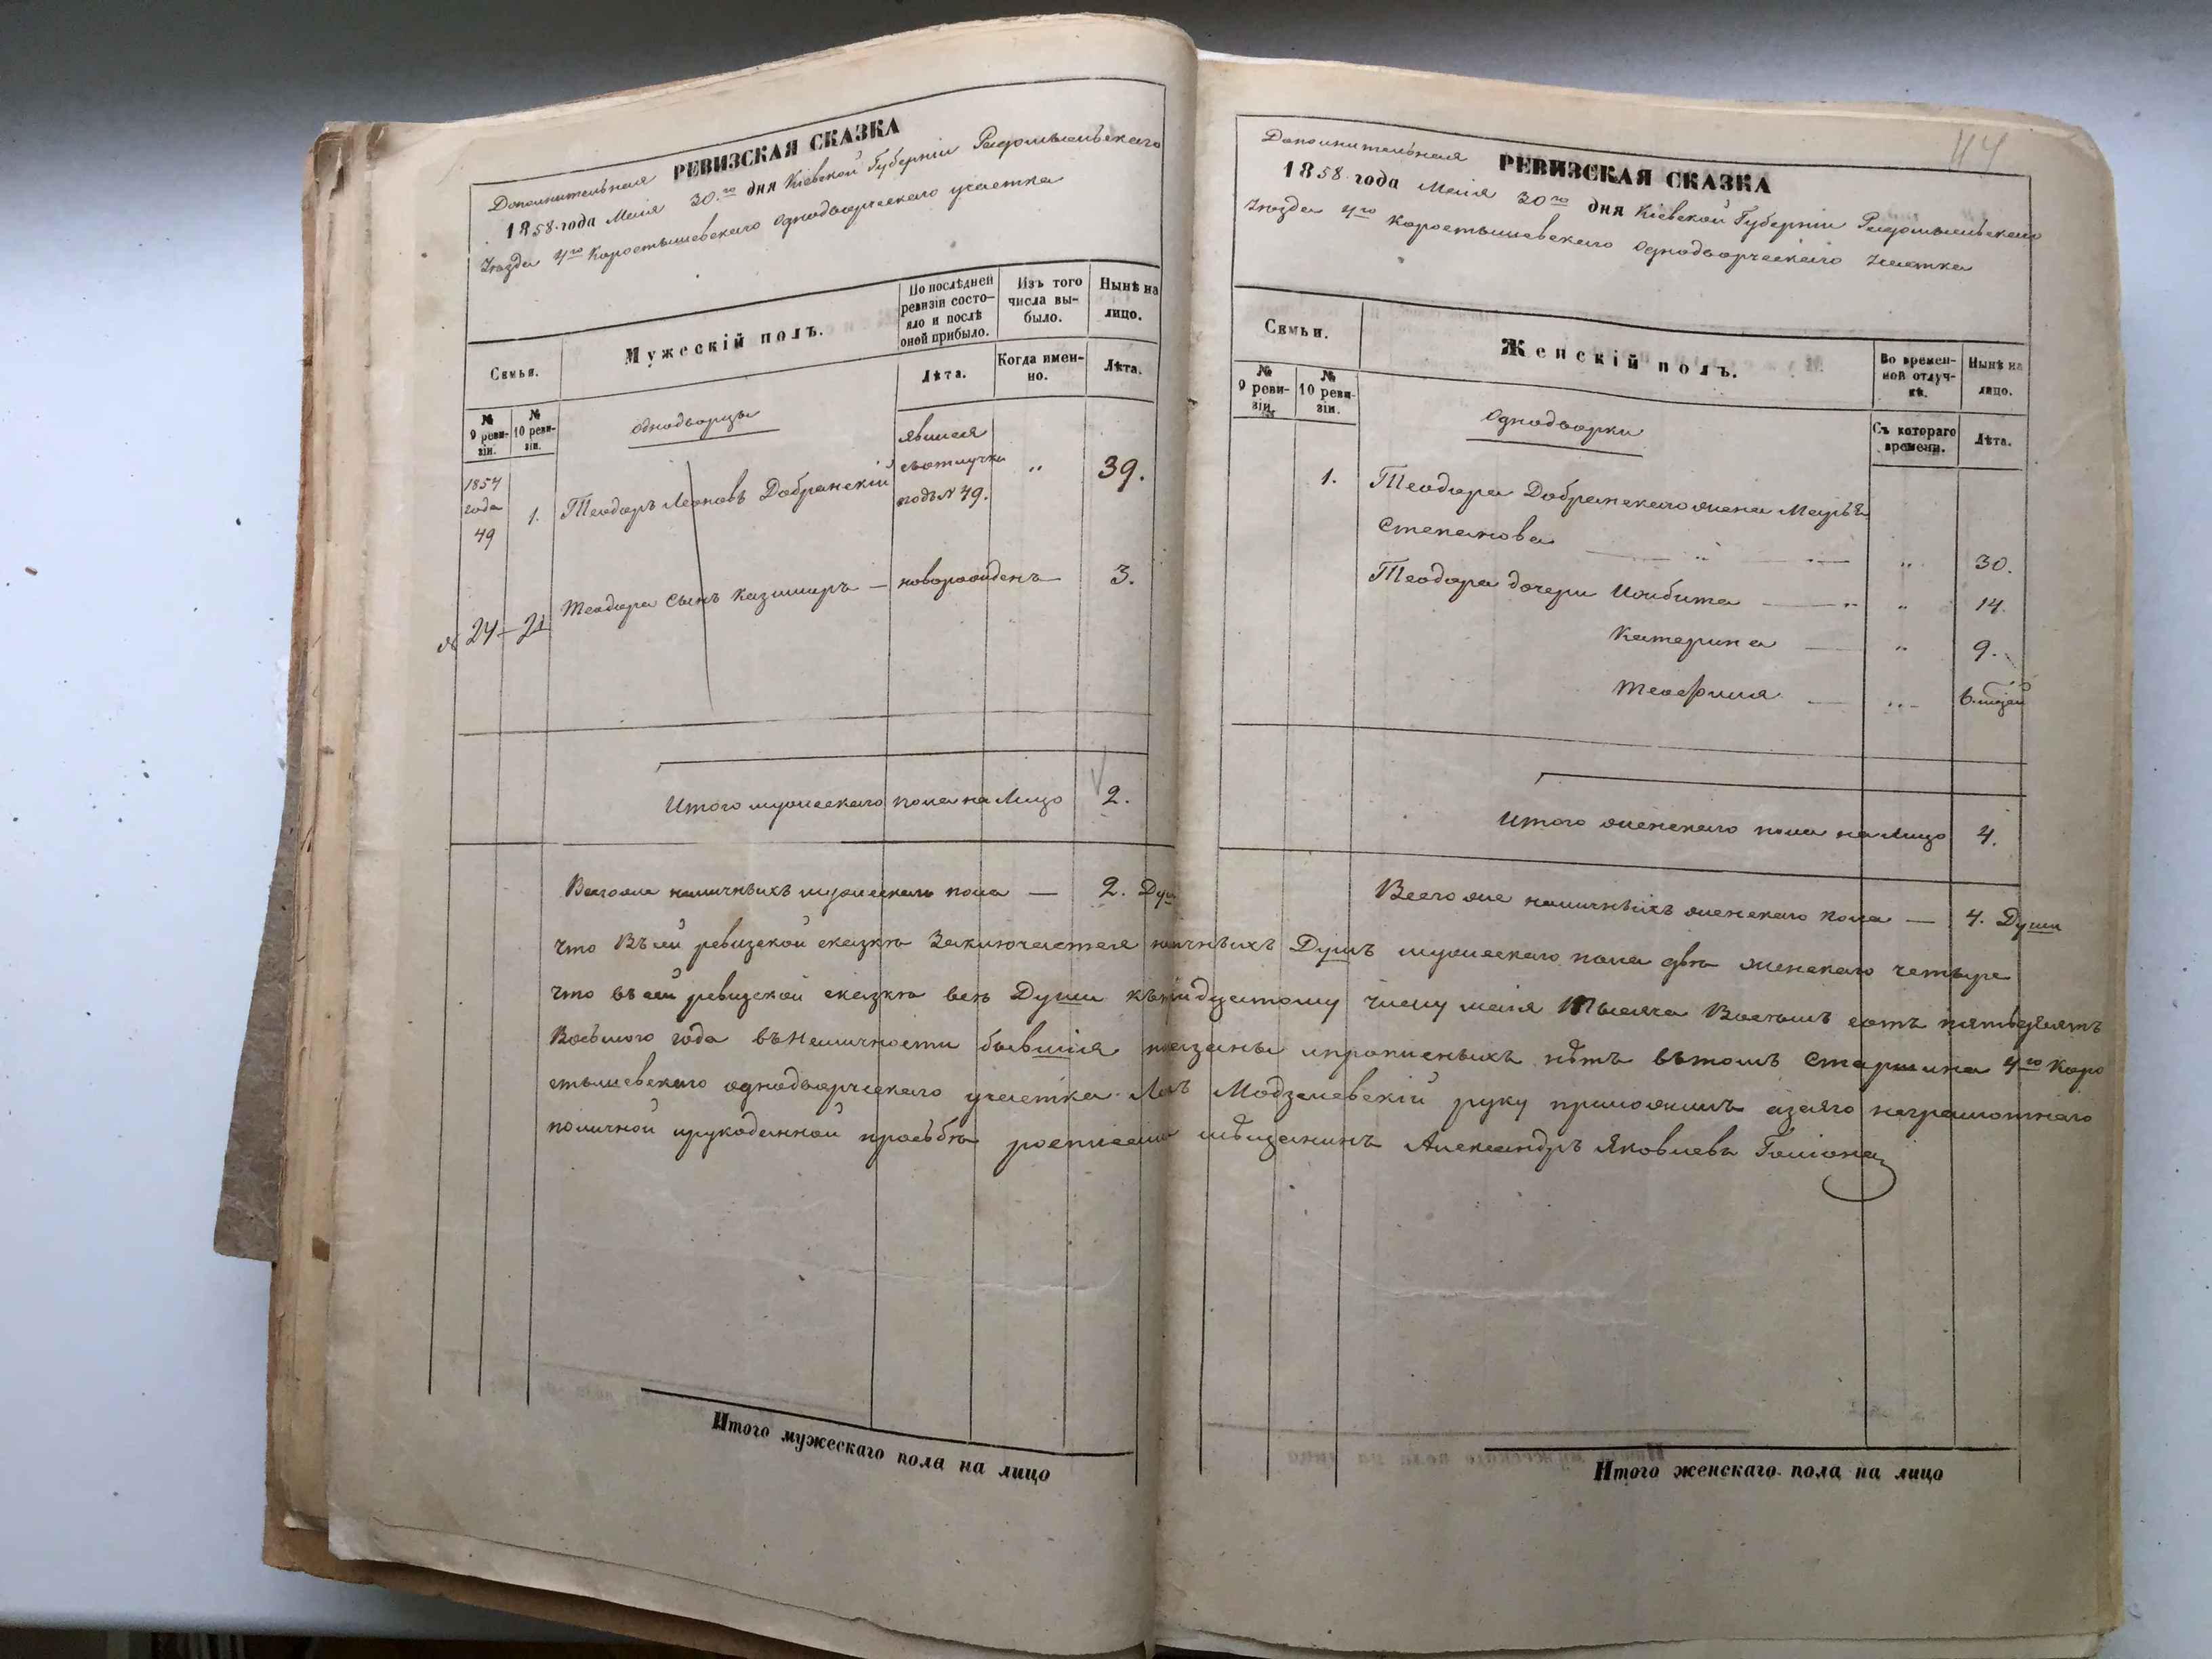 Дополнительная РЕВИЗСКАЯ СКАЗКА
1858 года Маія 30.го дня Кіевской Губерніи Радомысльскаго
Уѣзда 4го Коростышевскаго Однодворческаго участка
Семьи.
Мужескій полъ.
По послѣдней ревизіи состо-
яло и послѣ
оной прибыло.
Изъ того
числа вы-
было.
Нынѣ на
лицо.
Лѣта.
Когда имен-
но.
Лѣта.
№
9 реви-
зіи.
№
10 реви-
зіи.
Однодворцы
1854
года
49
1.
Теодоръ Леоновъ Добранскій
явился
съ отлучки
подъ N 49.
"
39.
Теодора сынъ Казимиръ — новорожденъ 3.
№ 24 — 21
Итого мужескаго пола на Лицо 2.
Всего же наличныхъ мужескаго пола — 2. Душ
114
Дополнительная РЕВИЗСКАЯ СКАЗКА
1858 года Маія 30го дня Кіевской Губерніи Радомысльскаго
Уѣзда 4го Коростышевскаго Однодворческаго Участка
Семьи.
Женскій полъ.
Во времен-
ной отлуч-
кѣ.
Нынѣ на
лицо.
№
9 реви-
зіи.
№
10 реви-
зіи.
Съ котораго
времени.
Лѣта.
Однодворки
1. Теодора Добранскаго жена Марья
Степанова " " 30.
Теодора дочери " " 14.
Катерина — " 9.
Теофиля — " 6.
Итого женскаго пола на Лицо 4.
Всего же наличныхъ женскаго пола — 4. Души
Что Въ сей ревизской сказкѣ Заключается наличныхъ Душъ мужескаго пола двѣ женскаго четыре
Что въ сей ревизской сказкѣ всѣ Души къ тридцатому числу маія Тысяча Восемь сотъ пятьдесятъ
Восьмого года въ Наличности бывшія показаны и прописныхъ нѣтъ въ томъ Старшина 4го Коро
стышевскаго однодворческаго участка Модзелевскій руку приложилъ а за его неграмотнаго
по личной и рукоданной просьбѣ росписался мѣщанинъ Александръ Яковлевъ
Итого мужескаго пола на лицо
Итого женскаго пола на лицо